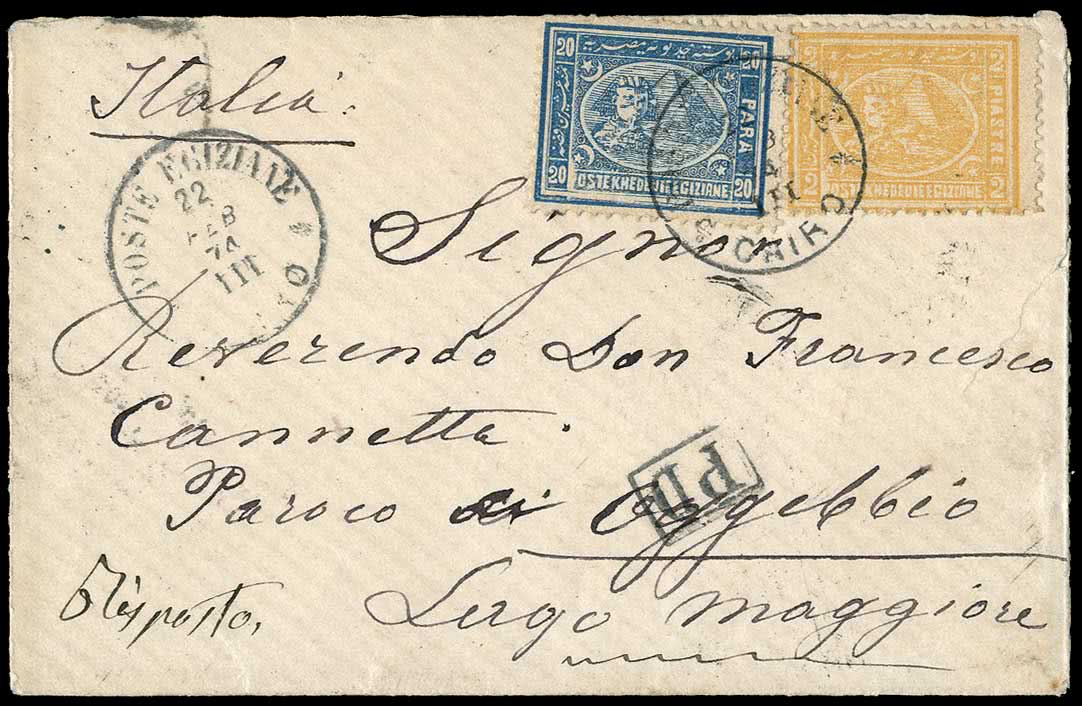 Italia.
20 20
بوسته خديويه مصريه
PARA
20 20
POSTE KHEDEUIE EGIZIANE
2 2
بوسته خديويه مصريه
PIASTRE
2 2
POSTE KHEDEUIE EGIZIANE
CAIRO
POSTE EGIZIANE
22
FEB
74
III
Signor
Reverendo Don Francesco
Cannetta.
Paroco di Oggebbio
PD
Risposto,
Lago maggiore